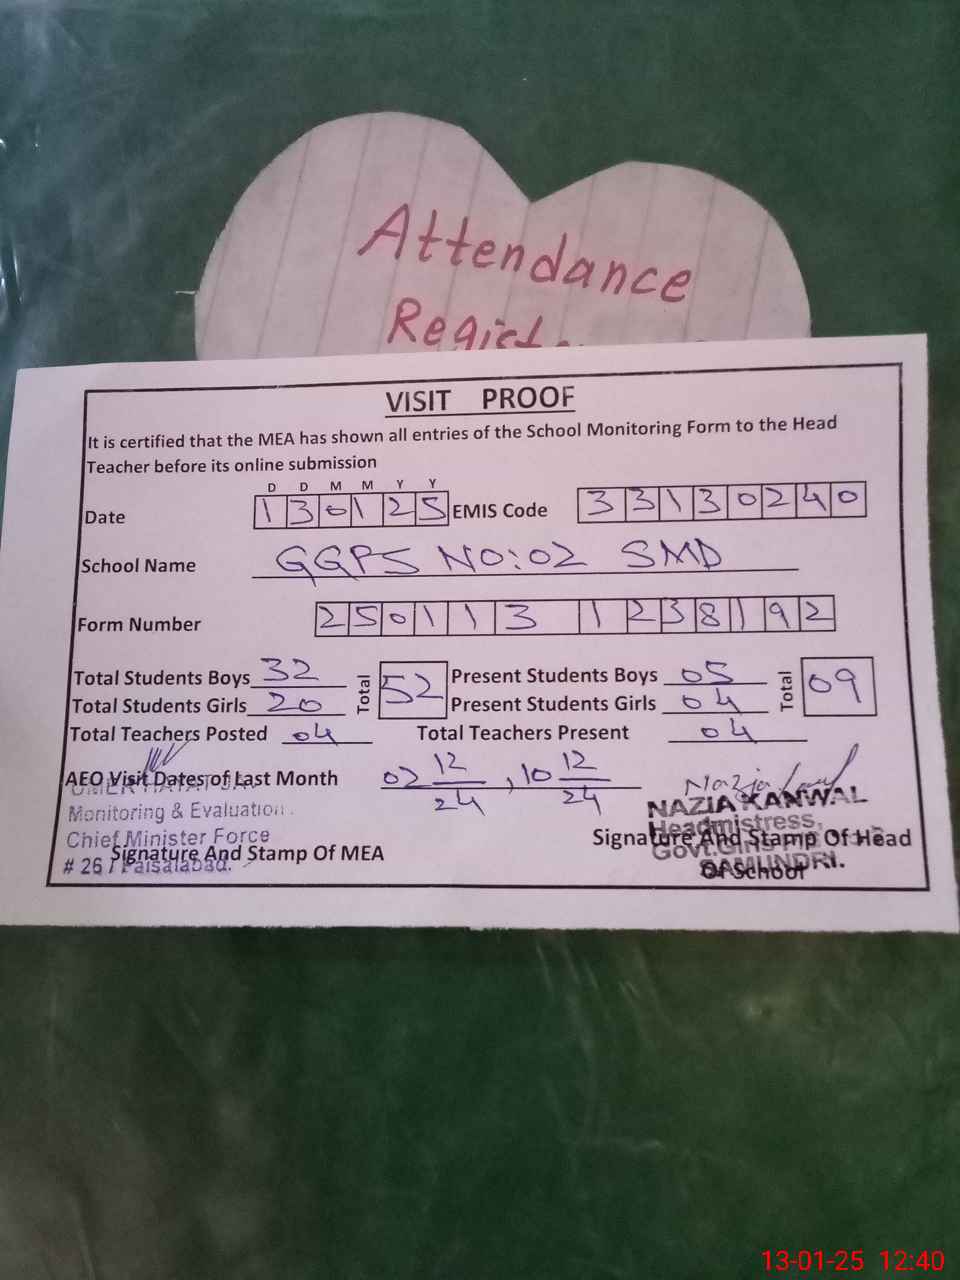 Attendance
Regist
VISIT PROOF
It is certified that the MEA has shown all entries of the School Monitoring Form to the Head
Teacher before its online submission
D D M M Y Y
Date 130125 EMIS Code 33130240
School Name GGPS NO:02 SMD
Form Number 2501131238192
Total Students Boys 32 Total 52 Present Students Boys 05 Total 09
Total Students Girls 20 Present Students Girls 04
Total Teachers Posted 04 Total Teachers Present 04
AEO Visit Dates of Last Month 02 12/24, 10 12/24
Monitoring & Evaluation
Chief Minister Force
# 26 / Faisalabad.
Signature And Stamp Of MEA
NAZIA KANWAL
Headmistress,
Signature And Stamp Of Head
Of School
SAMUNDRI.
13-01-25 12:40